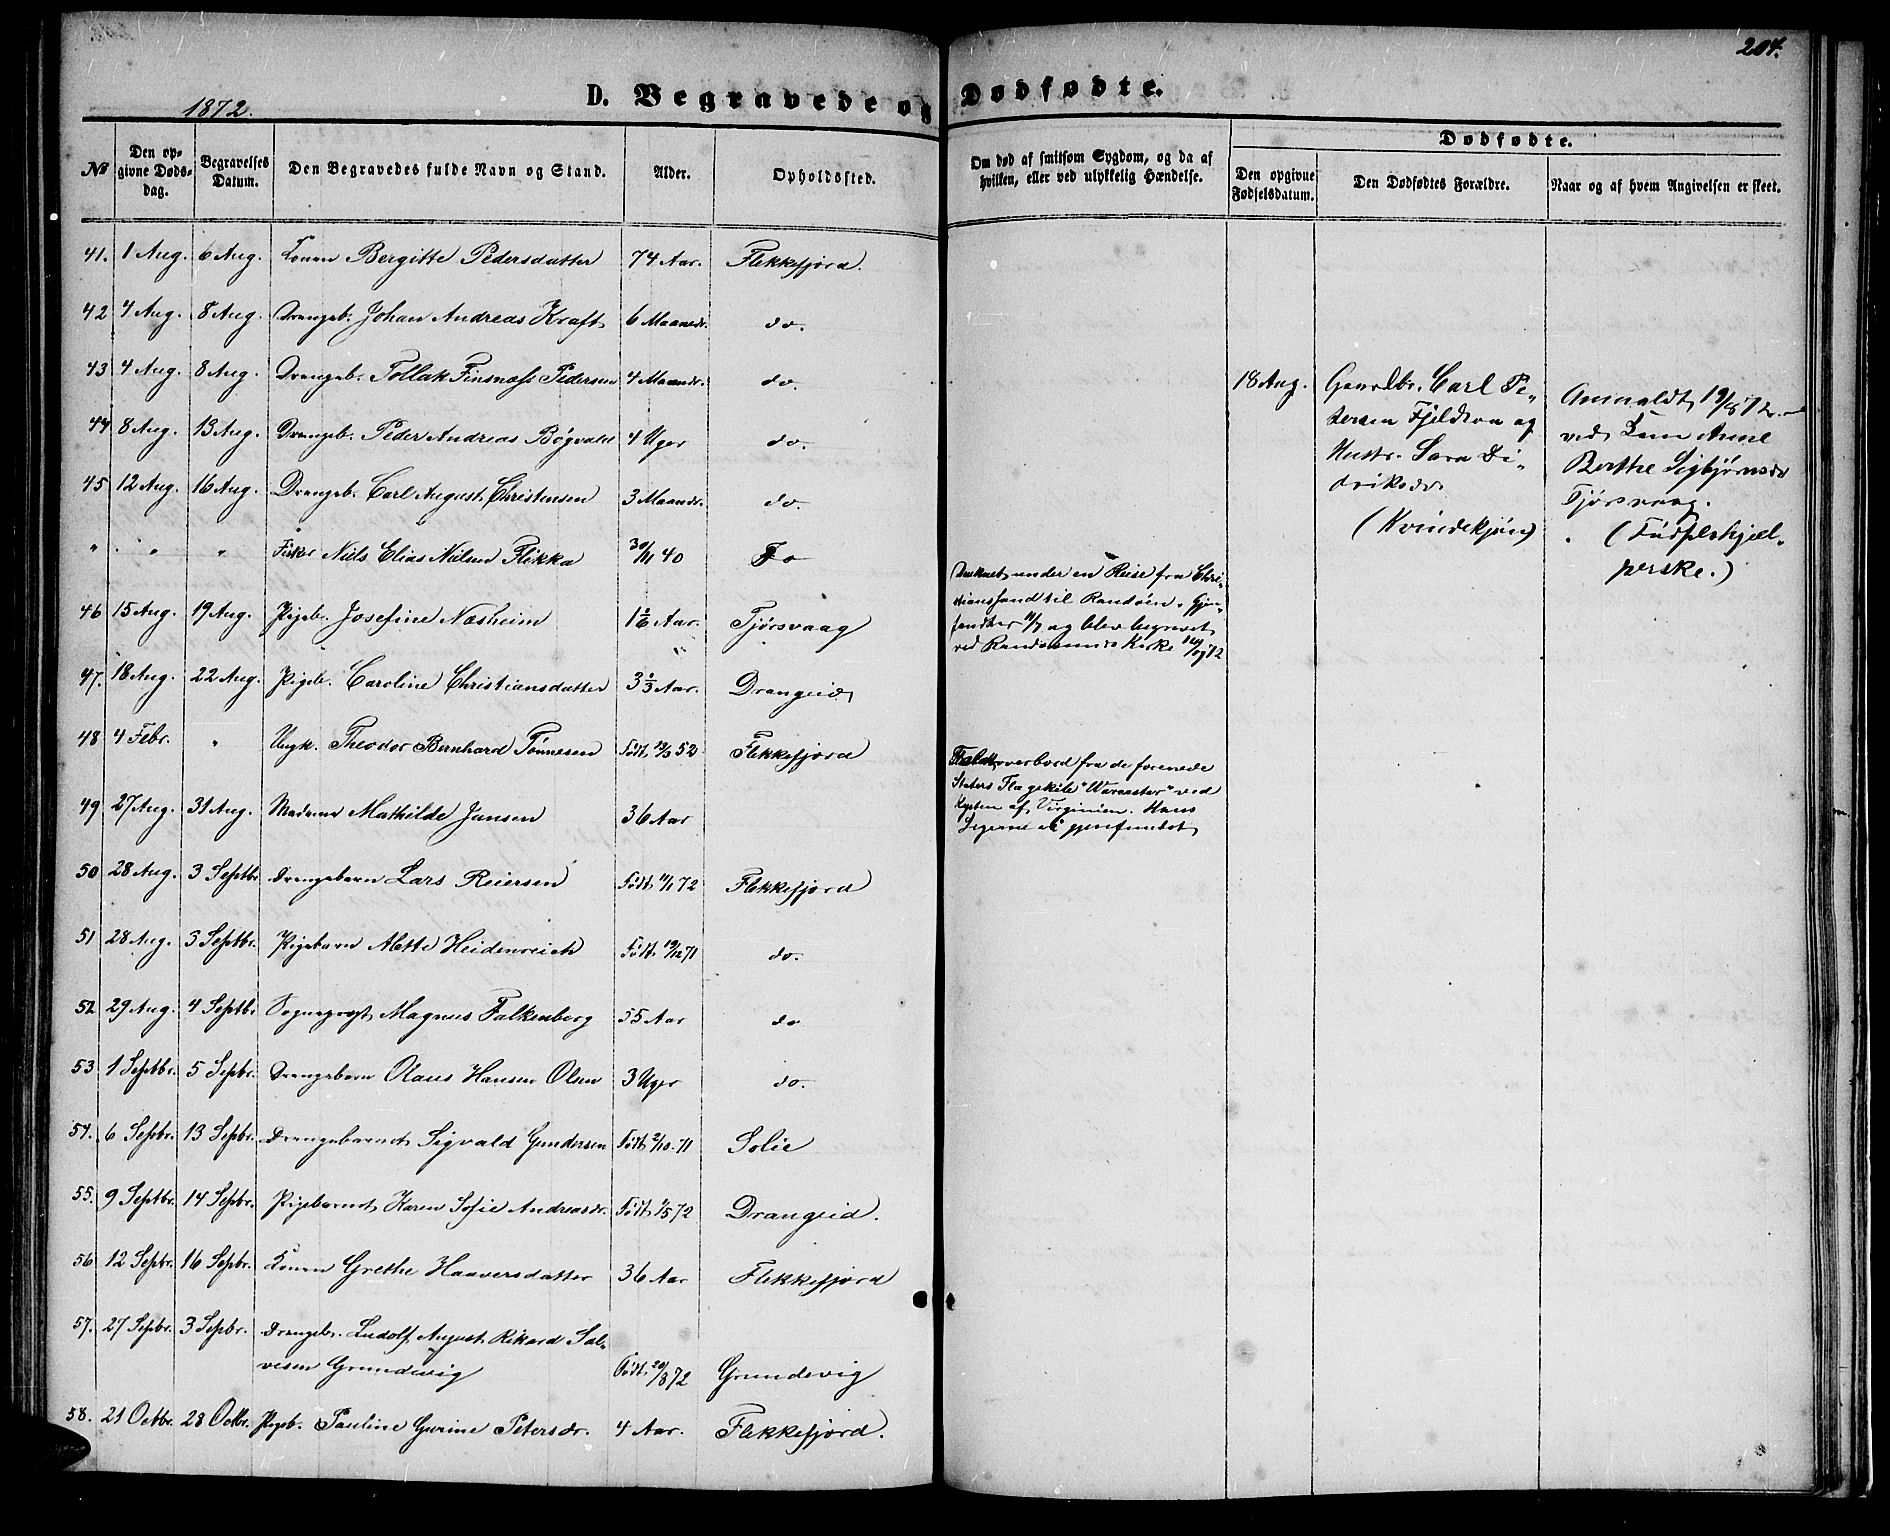 204.
1872.
D. Begravede og Dødfødte.
Dødfødte.
No
Den opgivne Dødsdag.
Begravelses Datum.
Den Begravedes fulde Navn og Stand.
Alder.
Opholdssted.
Om død af smitsom Sygdom, og da af hvilken, eller ved ulykkelig Hændelse.
Den opgivne Fødselsdatum.
Den Dødfødtes Forældre.
Naar og af hvem Angivelsen er skeet.
41. 1 Aug. 6 Aug. Konen Bergitte Pedersdatter 74 Aar. Flekkefjord.
42 4 Aug. 8 Aug. Drengeb. Johan Andreas Kraft 6 Maaneder. do.
43 4 Aug. 8 Aug. Drengeb. Tollak Finsnæss Pedersen 4 Maaneder. do.
44 8 Aug. 13 Aug. Drengeb. Peder Andreas Bøgvald 4 Uger do.
45 12 Aug. 16 Aug. Drengeb. Carl August Christensen 3 Maaneder. do.
" " " Fisker Niels Elias Nielsen Flikka 30/11 40 do
46 15 Aug. 19 Aug. Pigeb. Josefine Næsheim Aar. Tjørsvaag
47. 18 Aug. 22 Aug. Pigeb. Caroline Christiansdatter 3 2/3 Aar. Drangeid
48 4 Febr. " Ungk. Theodor Bernhard Tønnesen Født 19/3 52 Flekkefjord
49 27 Aug. 31 Aug. Madame Mathilde Jansen 36 Aar
50 28 Aug. 3 Septbr Drengebarn Lars Reiersen Født 72 Flekkefjord
51 28 Aug. 3 Septbr. Pigebarn Mette Heidenreich Født 19/12 71 do.
52 29 Aug. 4 Septbr Sognepræst Magnus Falkenberg 55 Aar do
53 1 Septbr. 5 Sepbr. Drengebarn Olaus Hansen Olsen 3 Uger do.
54. 6 Sepbr. 13 Sepbr. Drengebarnet Sigvald Gundersen Født 2/10. 71 Solie
55. 9 Septbr. 14 Sepbr. Pigebarnet Karen Sofie Andreasdr. Født 1/5 72 Drangeid.
56 12 Sepbr. 16 Sepbr. Konen Grethe Haaversdatter 36 Aar Flekkefjord
57. 27 Sepbr. 3 Sepbr. Drengeb. Ludolf August Rikard Sal-
vesen Grundevig Født 20/8 72 Grundevig
58. 21 Octbr. 28 Octbr. Pigeb. Pauline Gurine Petersdr. 4 Aar. Flekkefjord.
Druknet under en Reise fra Chri-
stianssand til Randøen. Gjen-
fundet og blev begravet
ved Randøsunds Kirke
Faldt overbord fra de forenede
Staters Flagskib "Worcester" ved
Kysten af Virginien. Hans
Legeme ei gjenfundet
18 Aug.
Gaardbr. Carl Pe-
tersen Fjeldsaa og
Hustr. Sara Di-
driksdr.
(Kvindekjøn)
Anmeldt 19/8 72
ved Anne
Berthe Sigbjørnsdr
Tjørsvaag.
(Fødselshjel-
perske.)